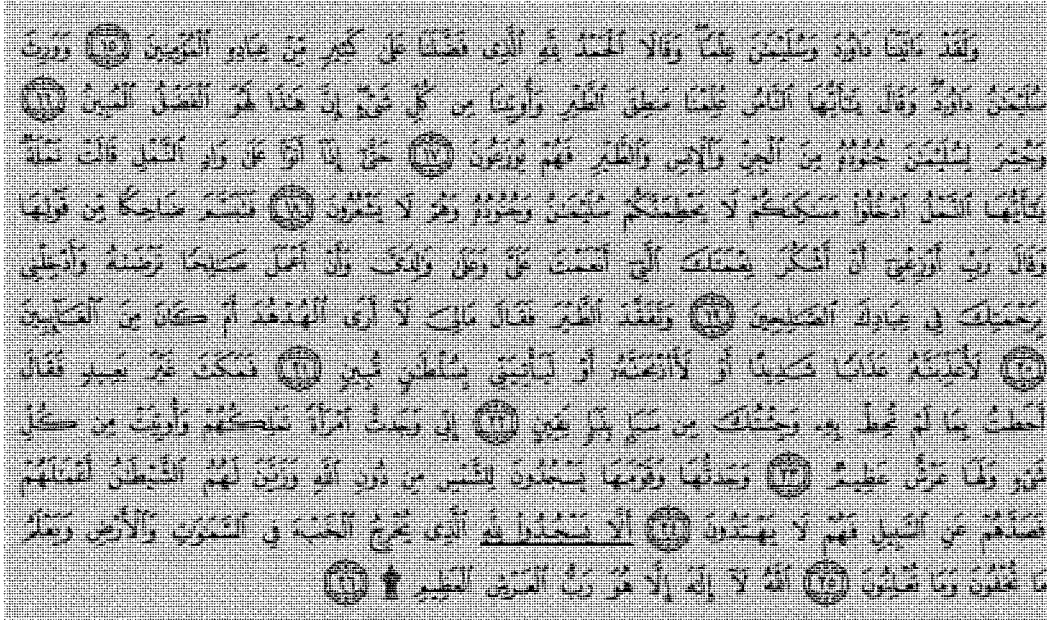 وَلَقَدْ ءَاتَيْنَا دَاوُۥدَ وَسُلَيْمَٰنَ عِلْمًا ۖ وَقَالَا ٱلْحَمْدُ لِلَّهِ ٱلَّذِى فَضَّلَنَا عَلَىٰ كَثِيرٍ مِّنْ عِبَادِهِ ٱلْمُؤْمِنِينَ ١٥ وَوَرِثَ
سُلَيْمَٰنُ دَاوُۥدَ ۖ وَقَالَ يَٰٓأَيُّهَا ٱلنَّاسُ عُلِّمْنَا مَنطِقَ ٱلطَّيْرِ وَأُوتِينَا مِن كُلِّ شَىْءٍ ۖ إِنَّ هَٰذَا لَهُوَ ٱلْفَضْلُ ٱلْمُبِينُ ١٦
وَحُشِرَ لِسُلَيْمَٰنَ جُنُودُهُۥ مِنَ ٱلْجِنِّ وَٱلْإِنسِ وَٱلطَّيْرِ فَهُمْ يُوزَعُونَ ١٧ حَتَّىٰٓ إِذَآ أَتَوْا۟ عَلَىٰ وَادِ ٱلنَّمْلِ قَالَتْ نَمْلَةٌ
يَٰٓأَيُّهَا ٱلنَّمْلُ ٱدْخُلُوا۟ مَسَٰكِنَكُمْ لَا يَحْطِمَنَّكُمْ سُلَيْمَٰنُ وَجُنُودُهُۥ وَهُمْ لَا يَشْعُرُونَ ١٨ فَتَبَسَّمَ ضَاحِكًا مِّن قَوْلِهَا
وَقَالَ رَبِّ أَوْزِعْنِىٓ أَنْ أَشْكُرَ نِعْمَتَكَ ٱلَّتِىٓ أَنْعَمْتَ عَلَىَّ وَعَلَىٰ وَٰلِدَىَّ وَأَنْ أَعْمَلَ صَٰلِحًا تَرْضَىٰهُ وَأَدْخِلْنِى
بِرَحْمَتِكَ فِى عِبَادِكَ ٱلصَّٰلِحِينَ ١٩ وَتَفَقَّدَ ٱلطَّيْرَ فَقَالَ مَالِىَ لَآ أَرَى ٱلْهُدْهُدَ أَمْ كَانَ مِنَ ٱلْغَآئِبِينَ
٢٠ لَأُعَذِّبَنَّهُۥ عَذَابًا شَدِيدًا أَوْ لَأَا۟ذْبَحَنَّهُۥٓ أَوْ لَيَأْتِيَنِّى بِسُلْطَٰنٍ مُّبِينٍ ٢١ فَمَكَثَ غَيْرَ بَعِيدٍ فَقَالَ
أَحَطتُ بِمَا لَمْ تُحِطْ بِهِۦ وَجِئْتُكَ مِن سَبَإٍۭ بِنَبَإٍ يَقِينٍ ٢٢ إِنِّى وَجَدتُّ ٱمْرَأَةً تَمْلِكُهُمْ وَأُوتِيَتْ مِن كُلِّ
شَىْءٍ وَلَهَا عَرْشٌ عَظِيمٌ ٢٣ وَجَدتُّهَا وَقَوْمَهَا يَسْجُدُونَ لِلشَّمْسِ مِن دُونِ ٱللَّهِ وَزَيَّنَ لَهُمُ ٱلشَّيْطَٰنُ أَعْمَٰلَهُمْ
فَصَدَّهُمْ عَنِ ٱلسَّبِيلِ فَهُمْ لَا يَهْتَدُونَ ٢٤ أَلَّا يَسْجُدُوا۟ لِلَّهِ ٱلَّذِى يُخْرِجُ ٱلْخَبْءَ فِى ٱلسَّمَٰوَٰتِ وَٱلْأَرْضِ وَيَعْلَمُ
مَا تُخْفُونَ وَمَا تُعْلِنُونَ ٢٥ ٱللَّهُ لَآ إِلَٰهَ إِلَّا هُوَ رَبُّ ٱلْعَرْشِ ٱلْعَظِيمِ ۩ ٢٦